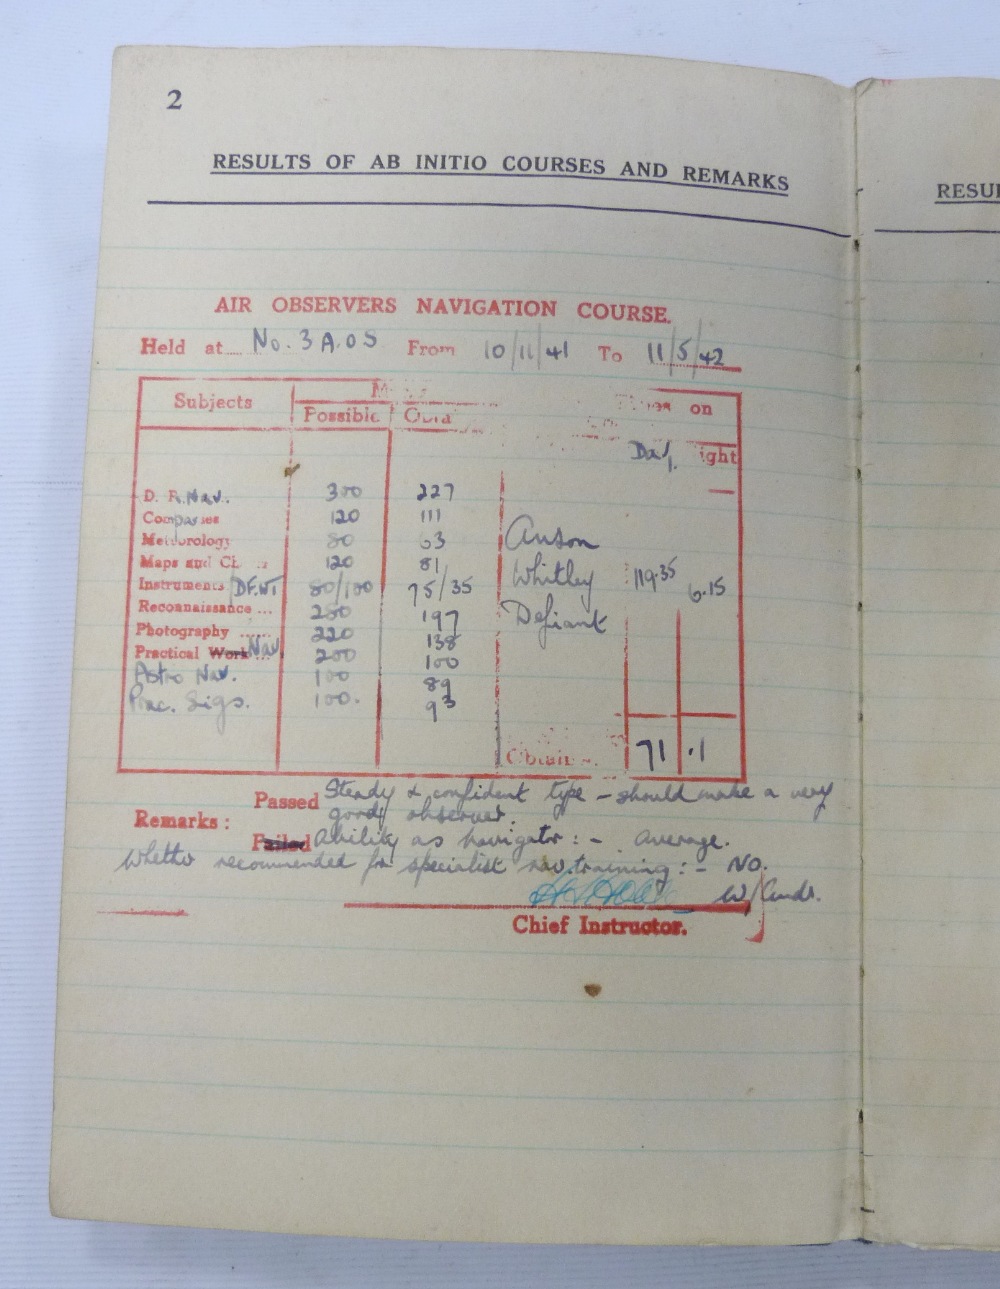 2
RESULTS OF AB INITIO COURSES AND REMARKS
RESU
AIR OBSERVERS NAVIGATION COURSE.
Held at No. 3 A.O.S From 10/11/41 To 11/5/42
Subjects on
Possible
Day ight
D. R. Nav. 300 227
Compasses 120 111
Meteorology 80 63 Anson
Maps and 120 81 Whitley 119.35 6.15
Instruments DF.WT 80/100 75/35
Reconnaissance ... 197 Defiant
Photography 220 138
Practical Work Nav 200 100
Astro Nav. 100 89
Prac. Sigs. 100. 93
71 .1
Passed Steady & confident type - should make a very
Remarks: good observer.
Failed Ability as navigator :- average.
Whether recommended for specialist nav. training :- NO.
W/Cmdr.
Chief Instructor.